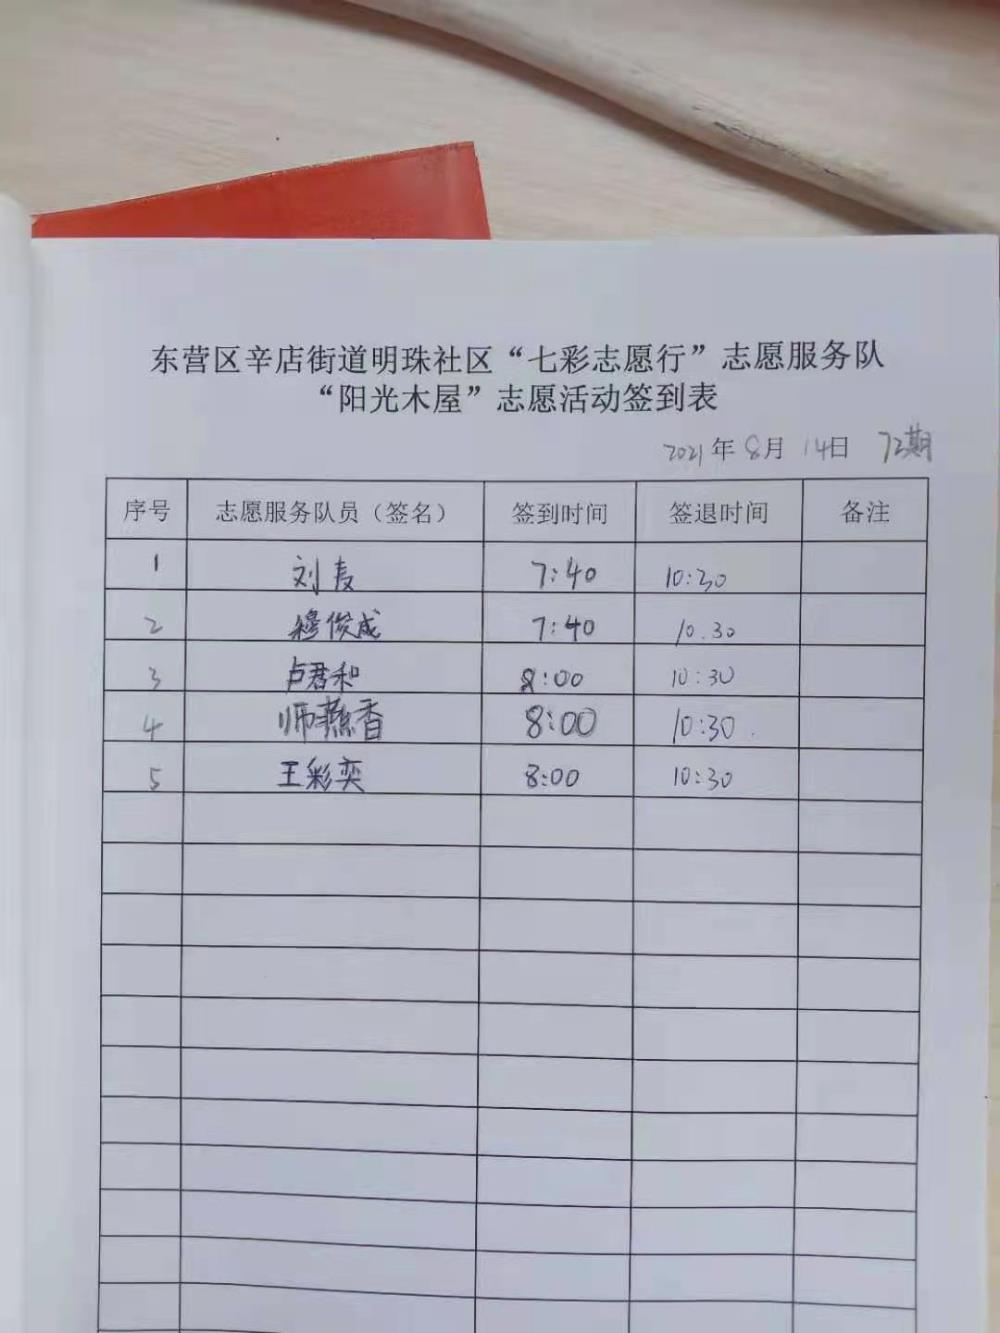 东营区辛店街道明珠社区“七彩志愿行”志愿服务队
“阳光木屋”志愿活动签到表
2021年8月14日 72期
序号 志愿服务队员（签名） 签到时间 签退时间 备注
1 刘麦 7:40 10:30
2 穆俊成 7:40 10.30
3 卢君和 8:00 10:30
4 师燕香 8:00 10:30.
5 王彩奕 8:00 10:30